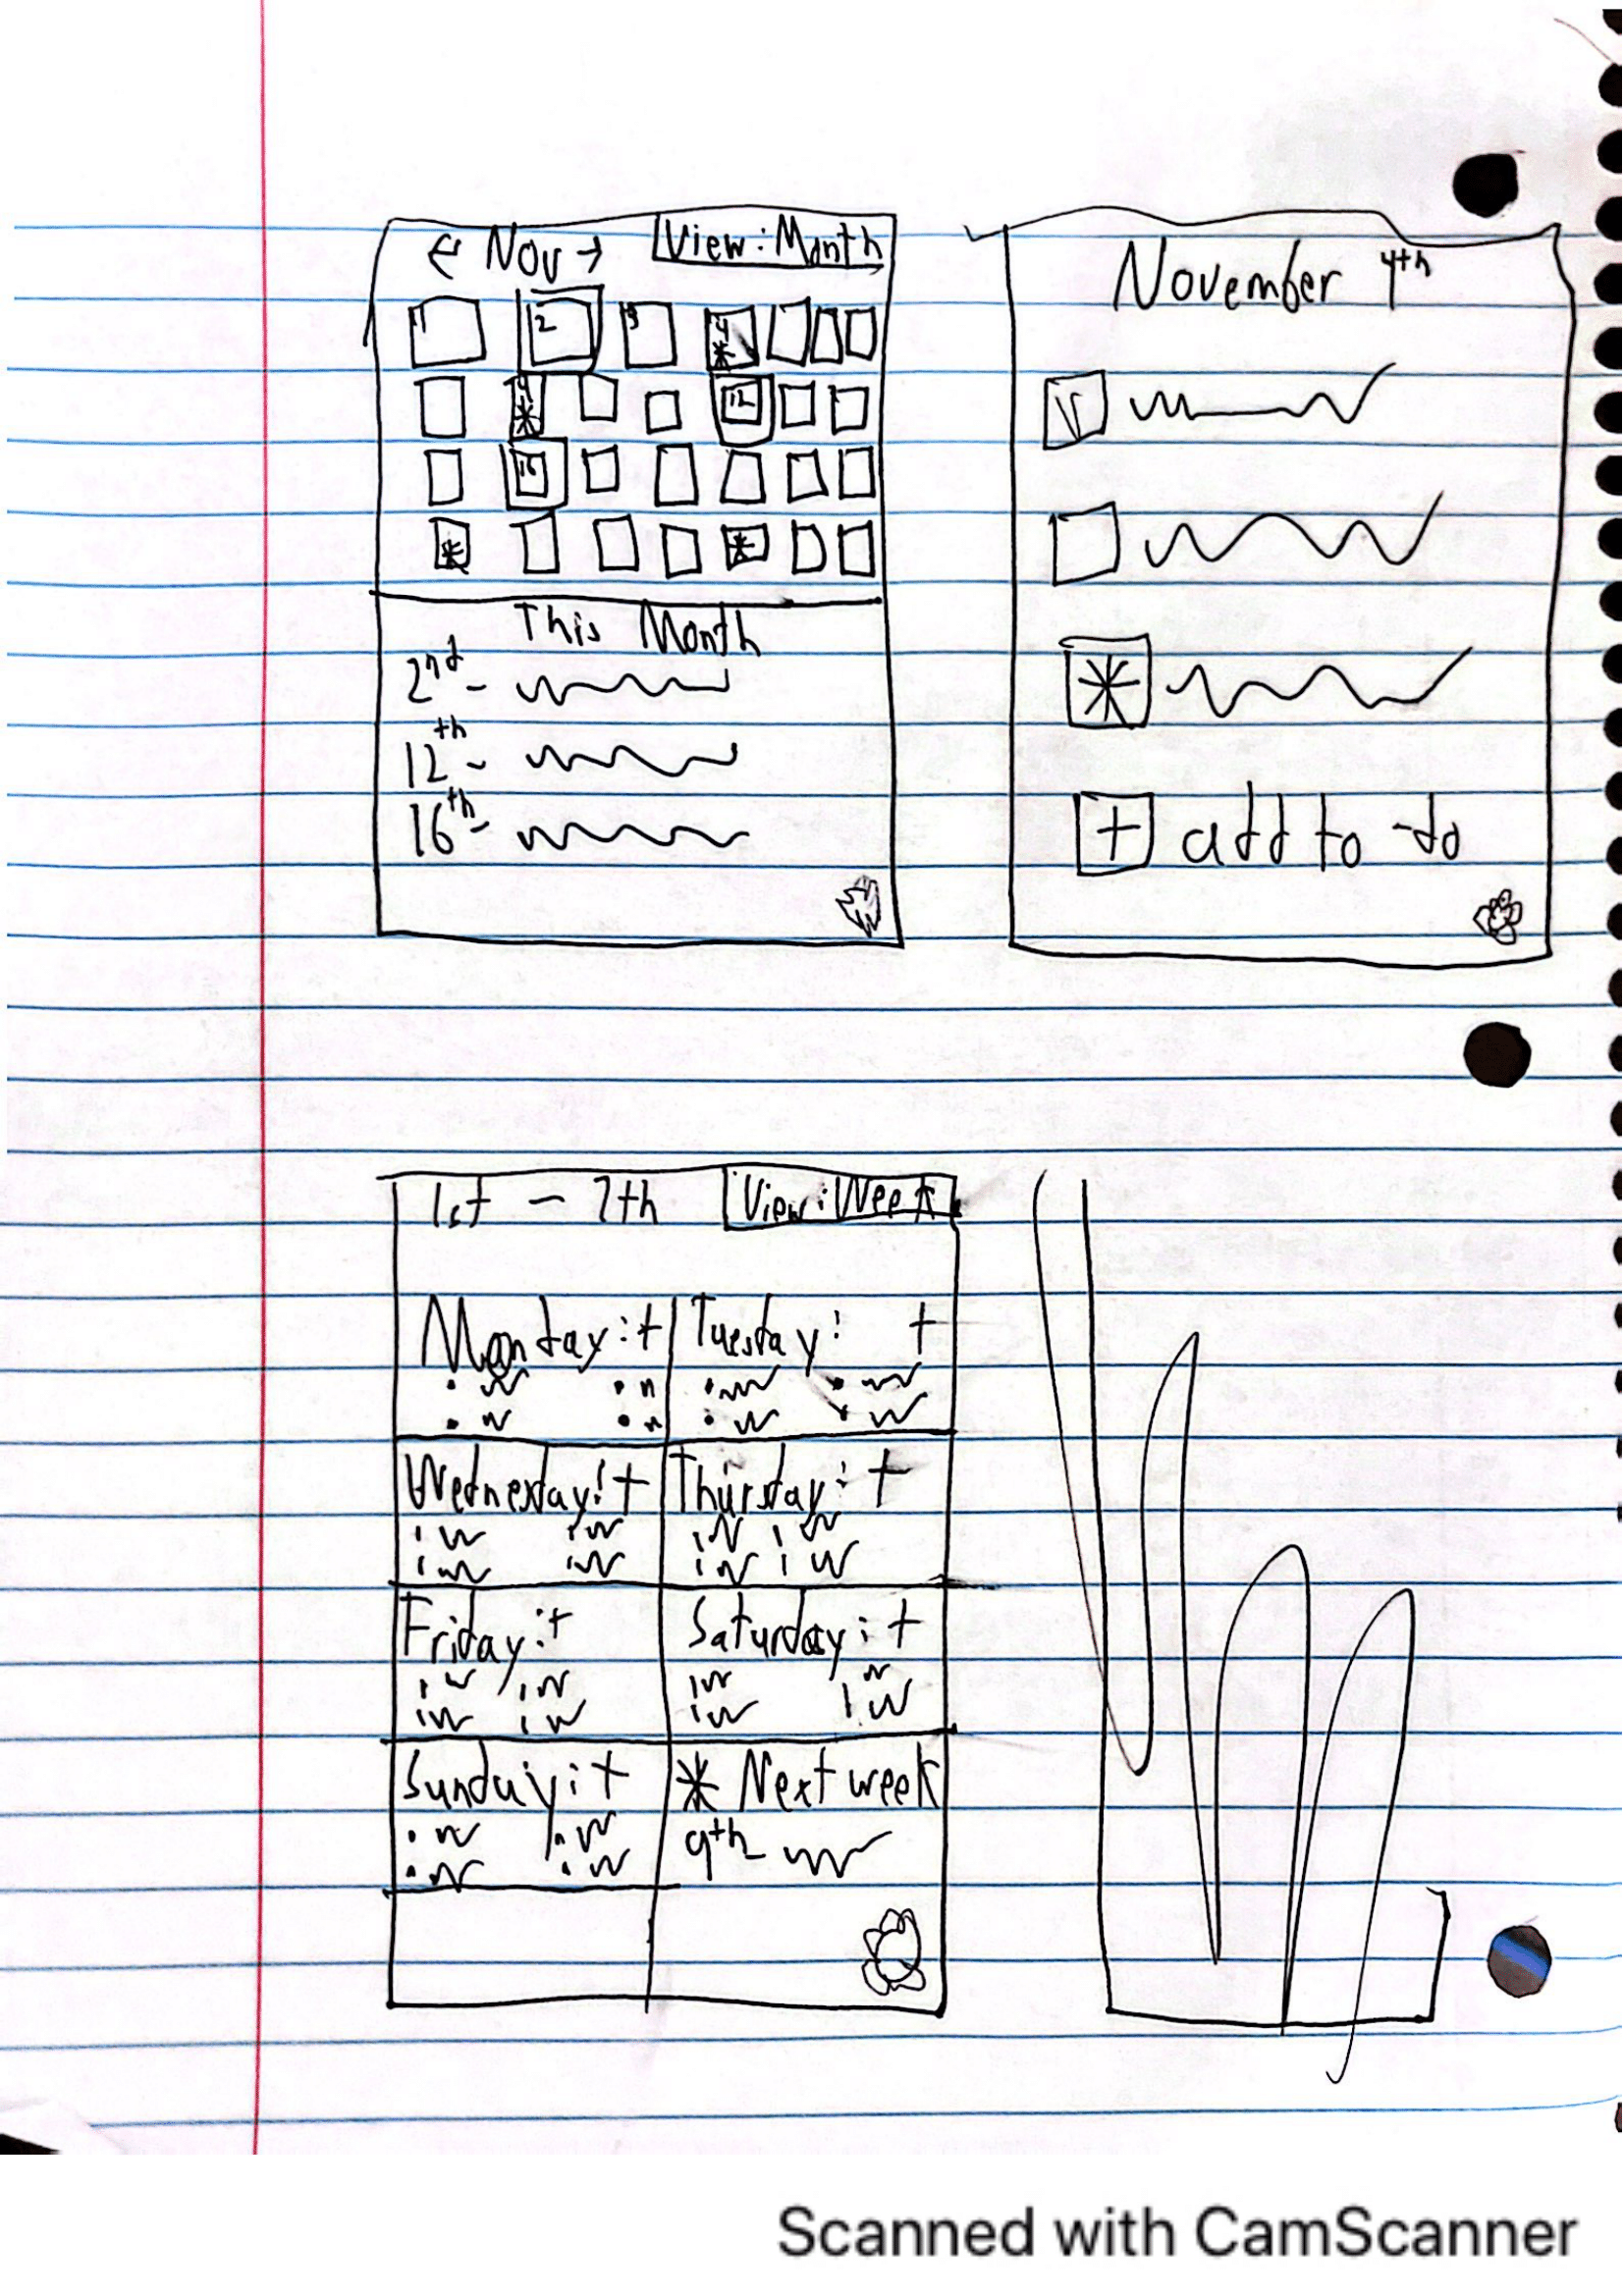 ← Nov → View: Month
1 2 3 4 *
* 12
16
* *
This Month
2nd -
12th -
16th -
November 4th
*
+ add to-do
1st - 7th View: Week
Monday: + Tuesday: +
Wednesday: + Thursday: +
Friday: + Saturday: +
Sunday: + * Next week
9th
Scanned with CamScanner